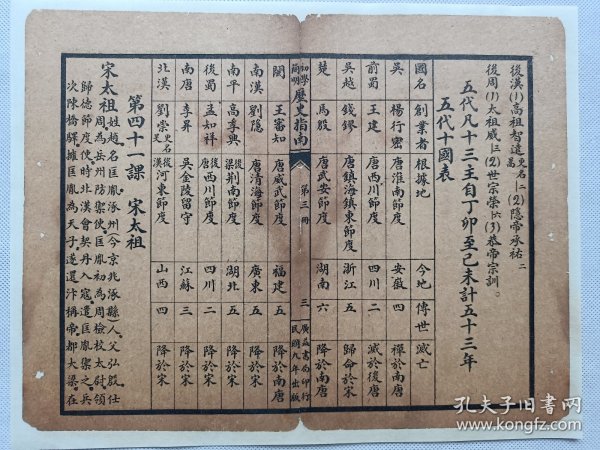 後漢(1)高祖智遠二(2)隱帝承祐二
後周(1)太祖威三(2)世宗榮六(3)恭帝宗訓。
五代凡十三主自丁卯至己未計五十三年
五代十國表
國名 創業者 根據地 今地 傳世 滅亡
吳 楊行密 唐淮南節度 安徽 四 禪於南唐
前蜀 王建 唐西川節度 四川 二 滅於後唐
吳越 錢鏐 唐鎮海鎮東節度 浙江 五 歸命於宋
楚 馬殷 唐武安節度 湖南 六 降於南唐
初學簡明 歷史指南 第三冊 三 廣益書局印行 民國九年出版
閩 王審知 唐威武節度 福建 五 降於南唐
南漢 劉隱 唐清海節度 廣東 五 降於宋
南平 高季興 後梁荆南節度 湖北 五 降於宋
後蜀 孟知祥 後唐西川節度 四川 二 降於宋
南唐 李昇 吳金陵留守 江蘇 三 降於宋
北漢 劉崇 後漢河東節度 山西 四 降於宋
第四十一課 宋太祖
宋太祖姓趙名匡胤涿州(今京兆涿縣)人父弘殷仕
周為岳州防禦使匡胤初為周檢校太尉領
歸德節度使時北漢會契丹入寇遣匡胤禦之兵
次陳橋驛擁匡胤為天子遂還汴稱帝都大梁在
孔夫子旧书网
www.kongfz.com